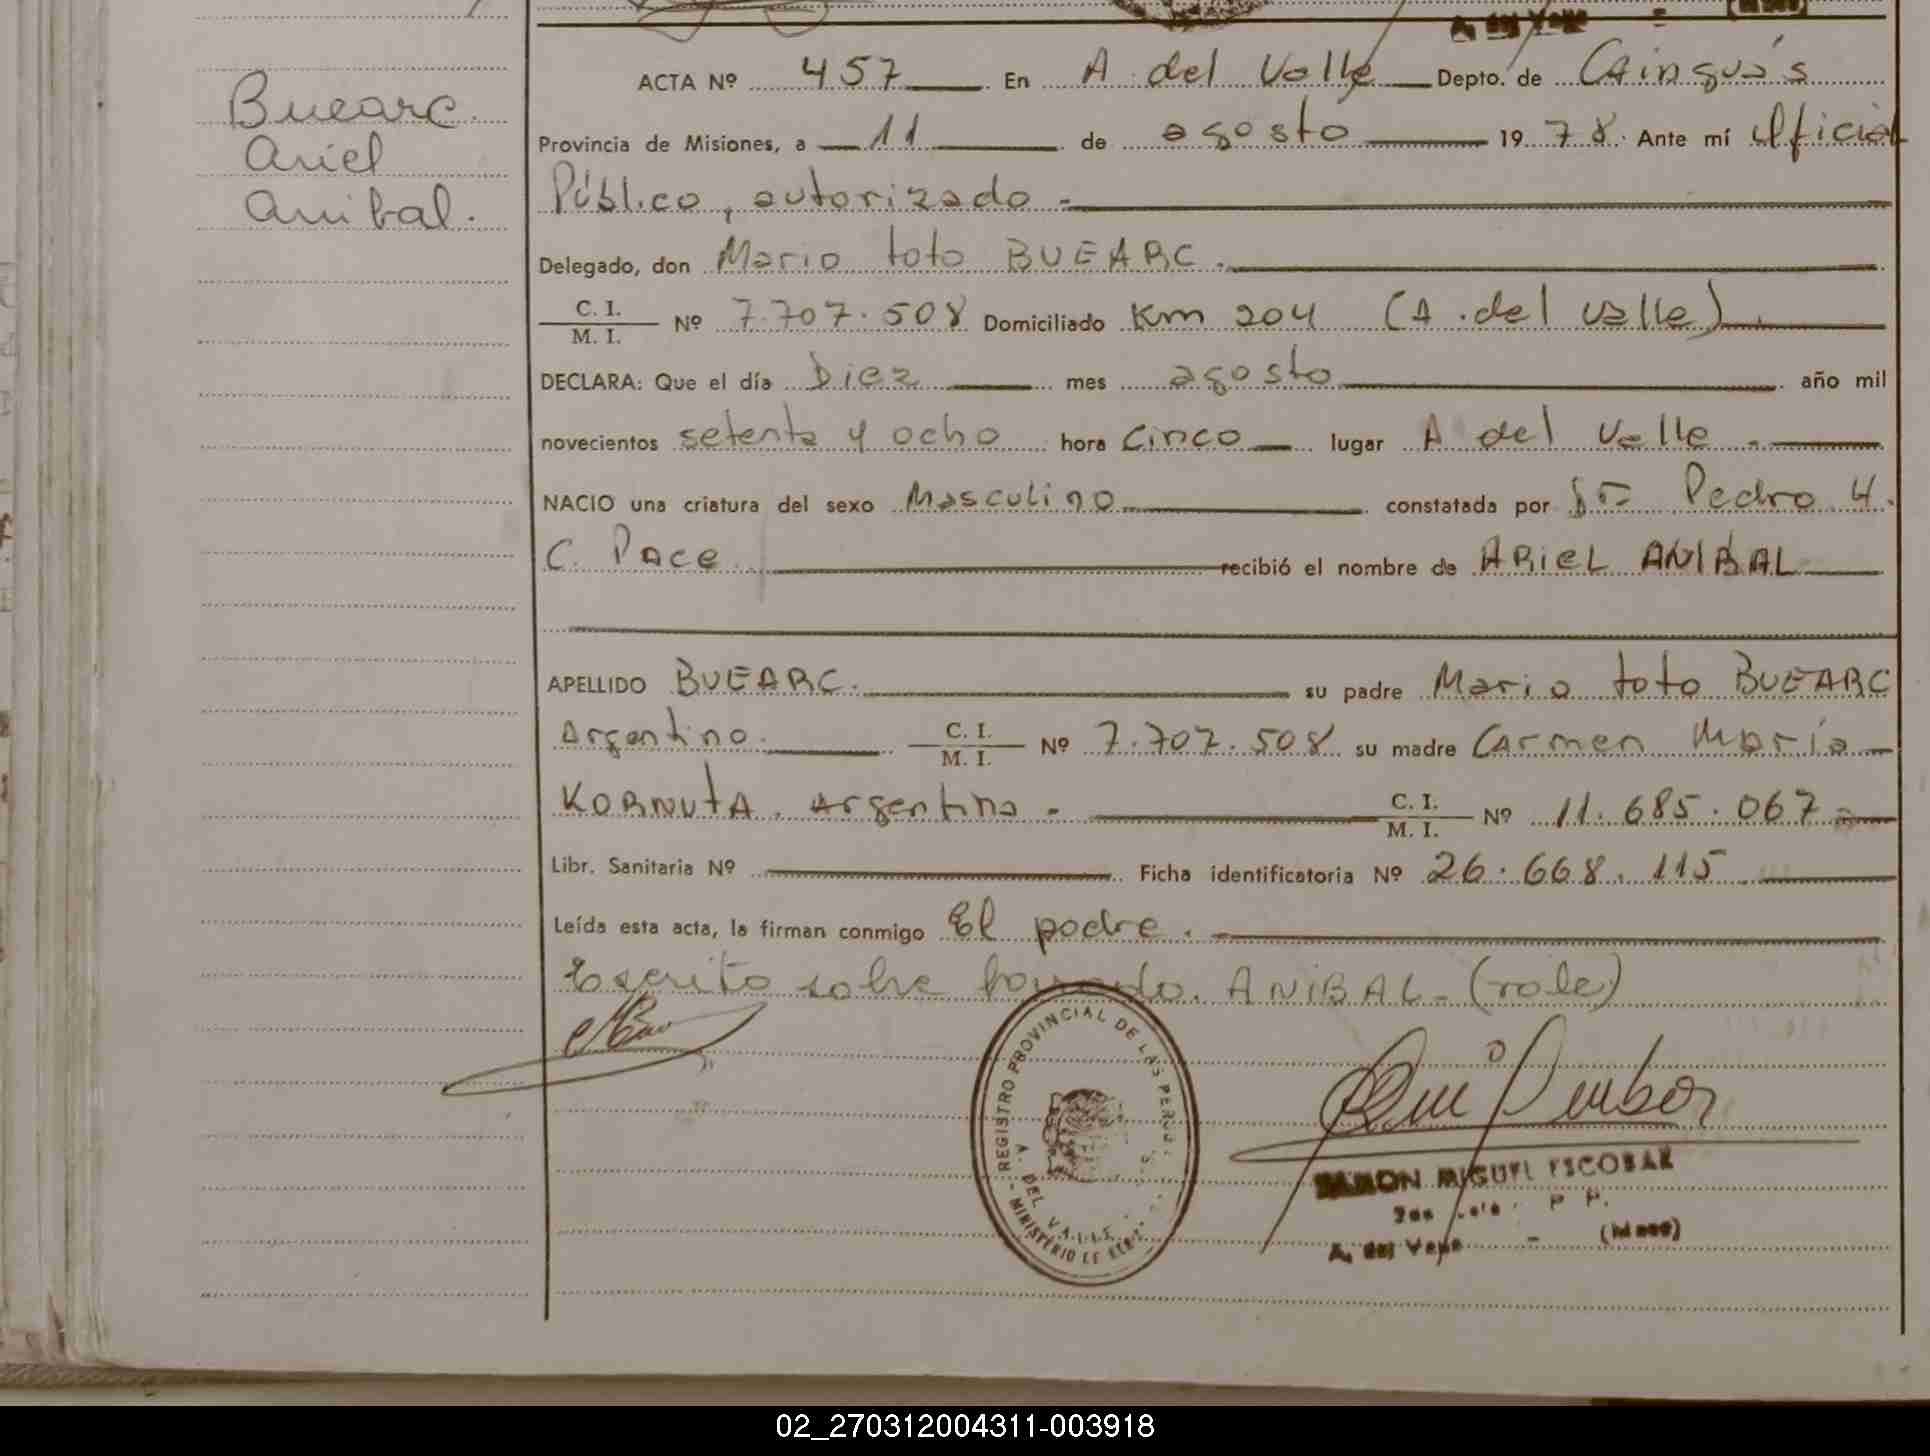 A. del Valle
(Mnes)
ACTA Nº 457 En A del Valle Depto. de CAinguás
Buearc
Ariel
Anibal.
Provincia de Misiones, a 11 de agosto 1978. Ante mí Oficial
Público, autorizado -
Delegado, don Mario toto BUEARC.
C. I.
M. I.
Nº 7.707.508 Domiciliado Km 204 (A.del valle).
DECLARA: Que el día Diez mes agosto año mil
novecientos setenta y ocho hora Cinco lugar A del Valle.
NACIO una criatura del sexo Masculino constatada por Pedro H.
C. PAce recibió el nombre de ARieL ANIBAL
APELLIDO BUEARC. su padre Mario toto BUEARC
Argentino. C. I.
M. I.
Nº 7.707.508 su madre CArmen María
KORNUtA. Argentina - C. I.
M. I.
Nº 11.685.067
Libr. Sanitaria Nº Ficha identificatoria Nº 26.668.115
Leída esta acta, la firman conmigo El padre.
Escrito sobre borrado. ANIBAL- (vale)
REGISTRO PROVINCIAL DE LAS PERS.
A. DEL VALLE
MINISTERIO DE
RAMON MIGUEL ESCOBAR
P. P.
A. del Valle - (Mnes)
02_270312004311-003918